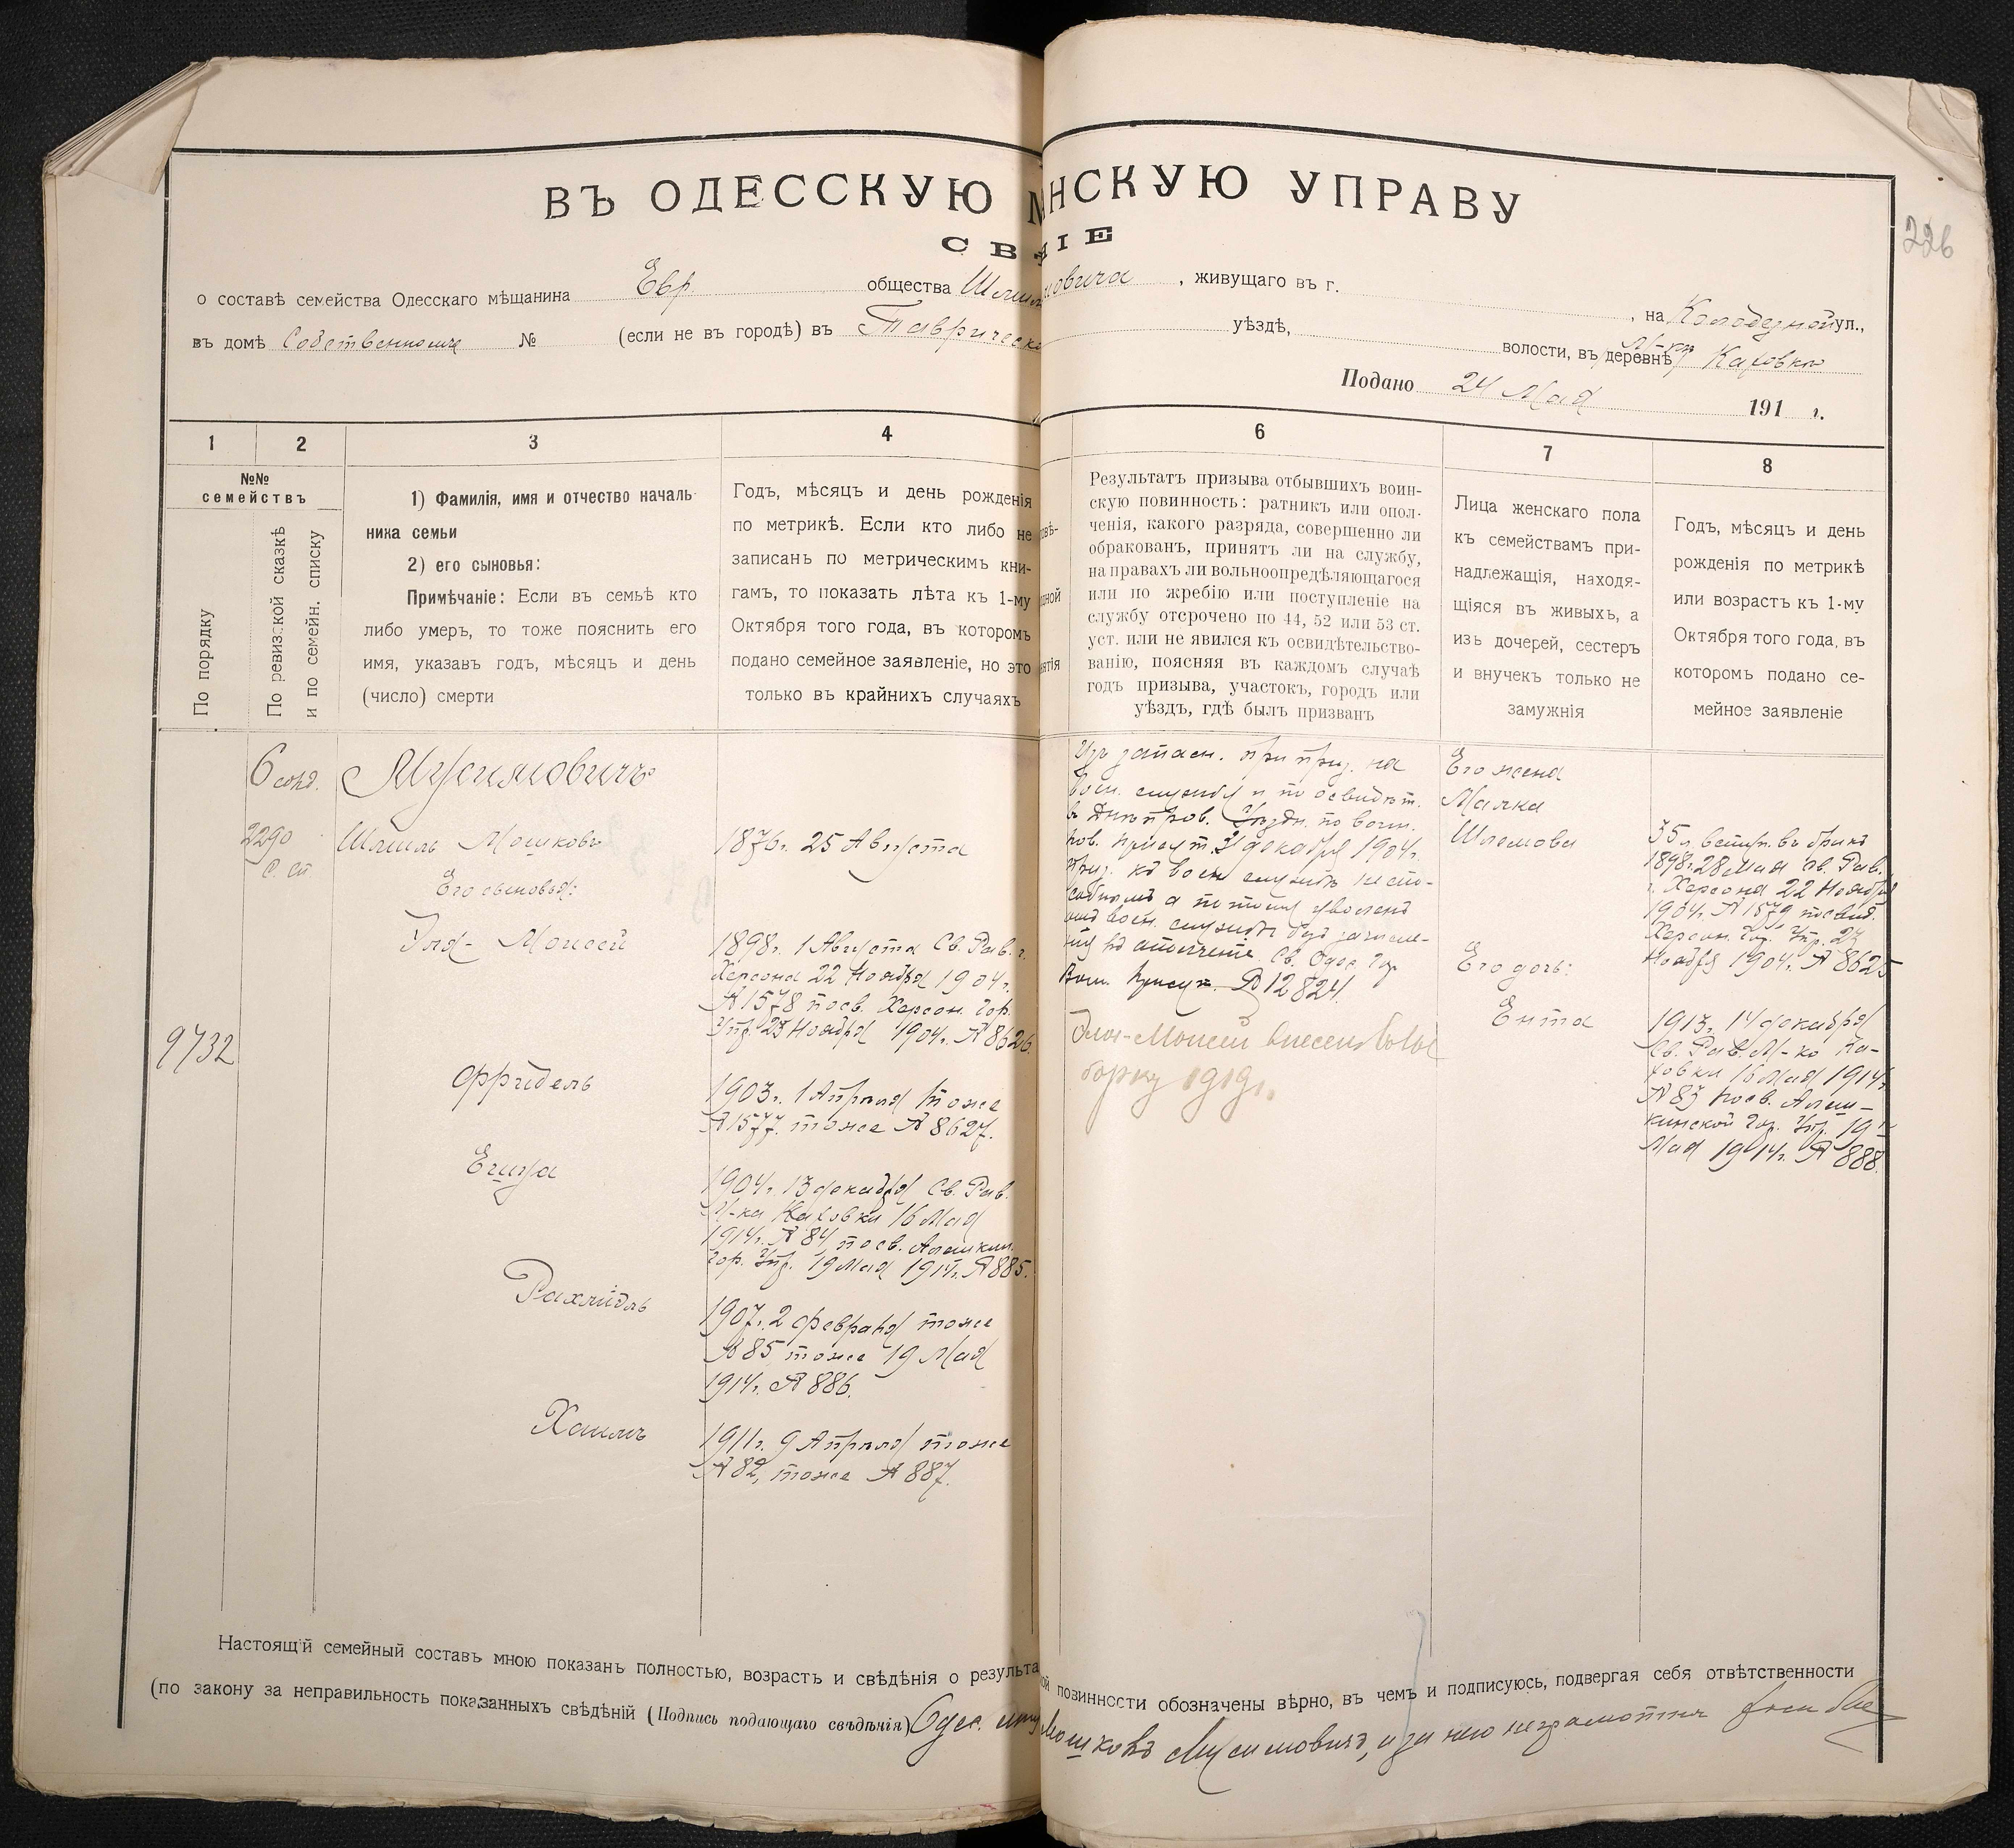 ВЪ ОДЕССКУЮ М НСКУЮ УПРАВУ
СВ НІЕ
226
о составѣ семейства Одесскаго мѣщанина Евр общества , живущаго въ г. , на Колодезной ул.,
въ домѣ Собственномъ № (если не въ городѣ) въ Таврическо уѣздѣ, волости, въ деревнѣ м-ки Каховки
Подано 24 Мая 191 г.
1 2 3 4 6 7 8
№№
семействъ
По порядку
По ревизской сказкѣ
и по семейн. списку
1) Фамилія, имя и отчество началь
ника семьи
2) его сыновья:
Примѣчаніе: Если въ семьѣ кто
либо умеръ, то тоже пояснить его
имя, указавъ годъ, мѣсяцъ и день
(число) смерти
Годъ, мѣсяцъ и день рожденія
по метрикѣ. Если кто либо не
записанъ по метрическимъ кни-
гамъ, то показать лѣта къ 1-му
Октября того года, въ которомъ
подано семейное заявленіе, но это
только въ крайнихъ случаяхъ
Результатъ призыва отбывшихъ воин-
скую повинность: ратникъ или опол-
ченія, какого разряда, совершенно ли
обракованъ, принятъ ли на службу,
на правахъ ли вольноопредѣляющагося
или по жребію или поступленіе на
службу отсрочено по 44, 52 или 53 ст.
уст. или не явился къ освидѣтельство-
ванію, поясняя въ каждомъ случаѣ
годъ призыва, участокъ, городъ или
уѣздъ, гдѣ былъ призванъ
Лица женскаго пола
къ семействамъ при-
надлежащія, находя-
щіяся въ живыхъ, а
изъ дочерей, сестеръ
и внучекъ только не
замужнія
Годъ, мѣсяцъ и день
рожденія по метрикѣ
или возрастъ къ 1-му
Октября того года, въ
которомъ подано се-
мейное заявленіе
9732
2290
Мусимовичъ
Шмиль Мошковъ
1876г. 25 Августа
Его сыновья:
Эля- Моисей
1898г. 1 Августа Св. Рав. г.
Херсона 22 Ноября 1904г.
№ 1578 посв. Херсон. Гор.
Упр. 23 Ноября 1904г. № 8626.
Фридель
1903г. 1 Апрѣля тоже
№ 1577. тоже № 8627.
1904г. 13 декабря Св. Рав.
М-ка Каховки 16 Мая
1914г. № 84 посв. Алешкин.
Гор. Упр. 19 Мая 1914г. № 885.
Рахмиль
1907г. 2 февраля тоже
№ 85 тоже 19 Мая
1914г. № 886.
Хаимъ
1911г. 9 Апрѣля тоже
№ 82, тоже № 887.
Изъ запасн. при приз. на
воен. службу и по освидѣт.
в Днѣпров. Уѣздн. по воин.
пов. присут. декабря 1904г.
приз. къ воен. службѣ неспо-
собнымъ а потому уволенъ
Воин. Присут. № 12824.
Эля-Моисей внесенъ
1919г.
Его жена
Малка
Шлемова
35 л. вступ. въ бракъ
1898г. 28 Мая Св. Рав.
г. Херсона 22 Ноября
1904г. № 1579 посвид.
Херсон. Гор. Упр. 23
Ноября 1904г. № 8625
Его дочь:
Ента
1913г. 14 декабря
Св. Рав. М-ко Ка-
ховки 16 Мая 1914г.
№ 83 посв. Алеш-
кинской Гор. Упр. 19
Мая 1914г. № 888.
Настоящій семейный составъ мною показанъ полностью, возрастъ и свѣдѣнія о результа ой повинности обозначены вѣрно, въ чемъ и подписуюсь, подвергая себя отвѣтственности
(по закону за неправильность показанныхъ свѣдѣній (Подпись подающаго свѣдѣнія) Одес. Мошковъ Мусимовичъ, а за него неграмотна